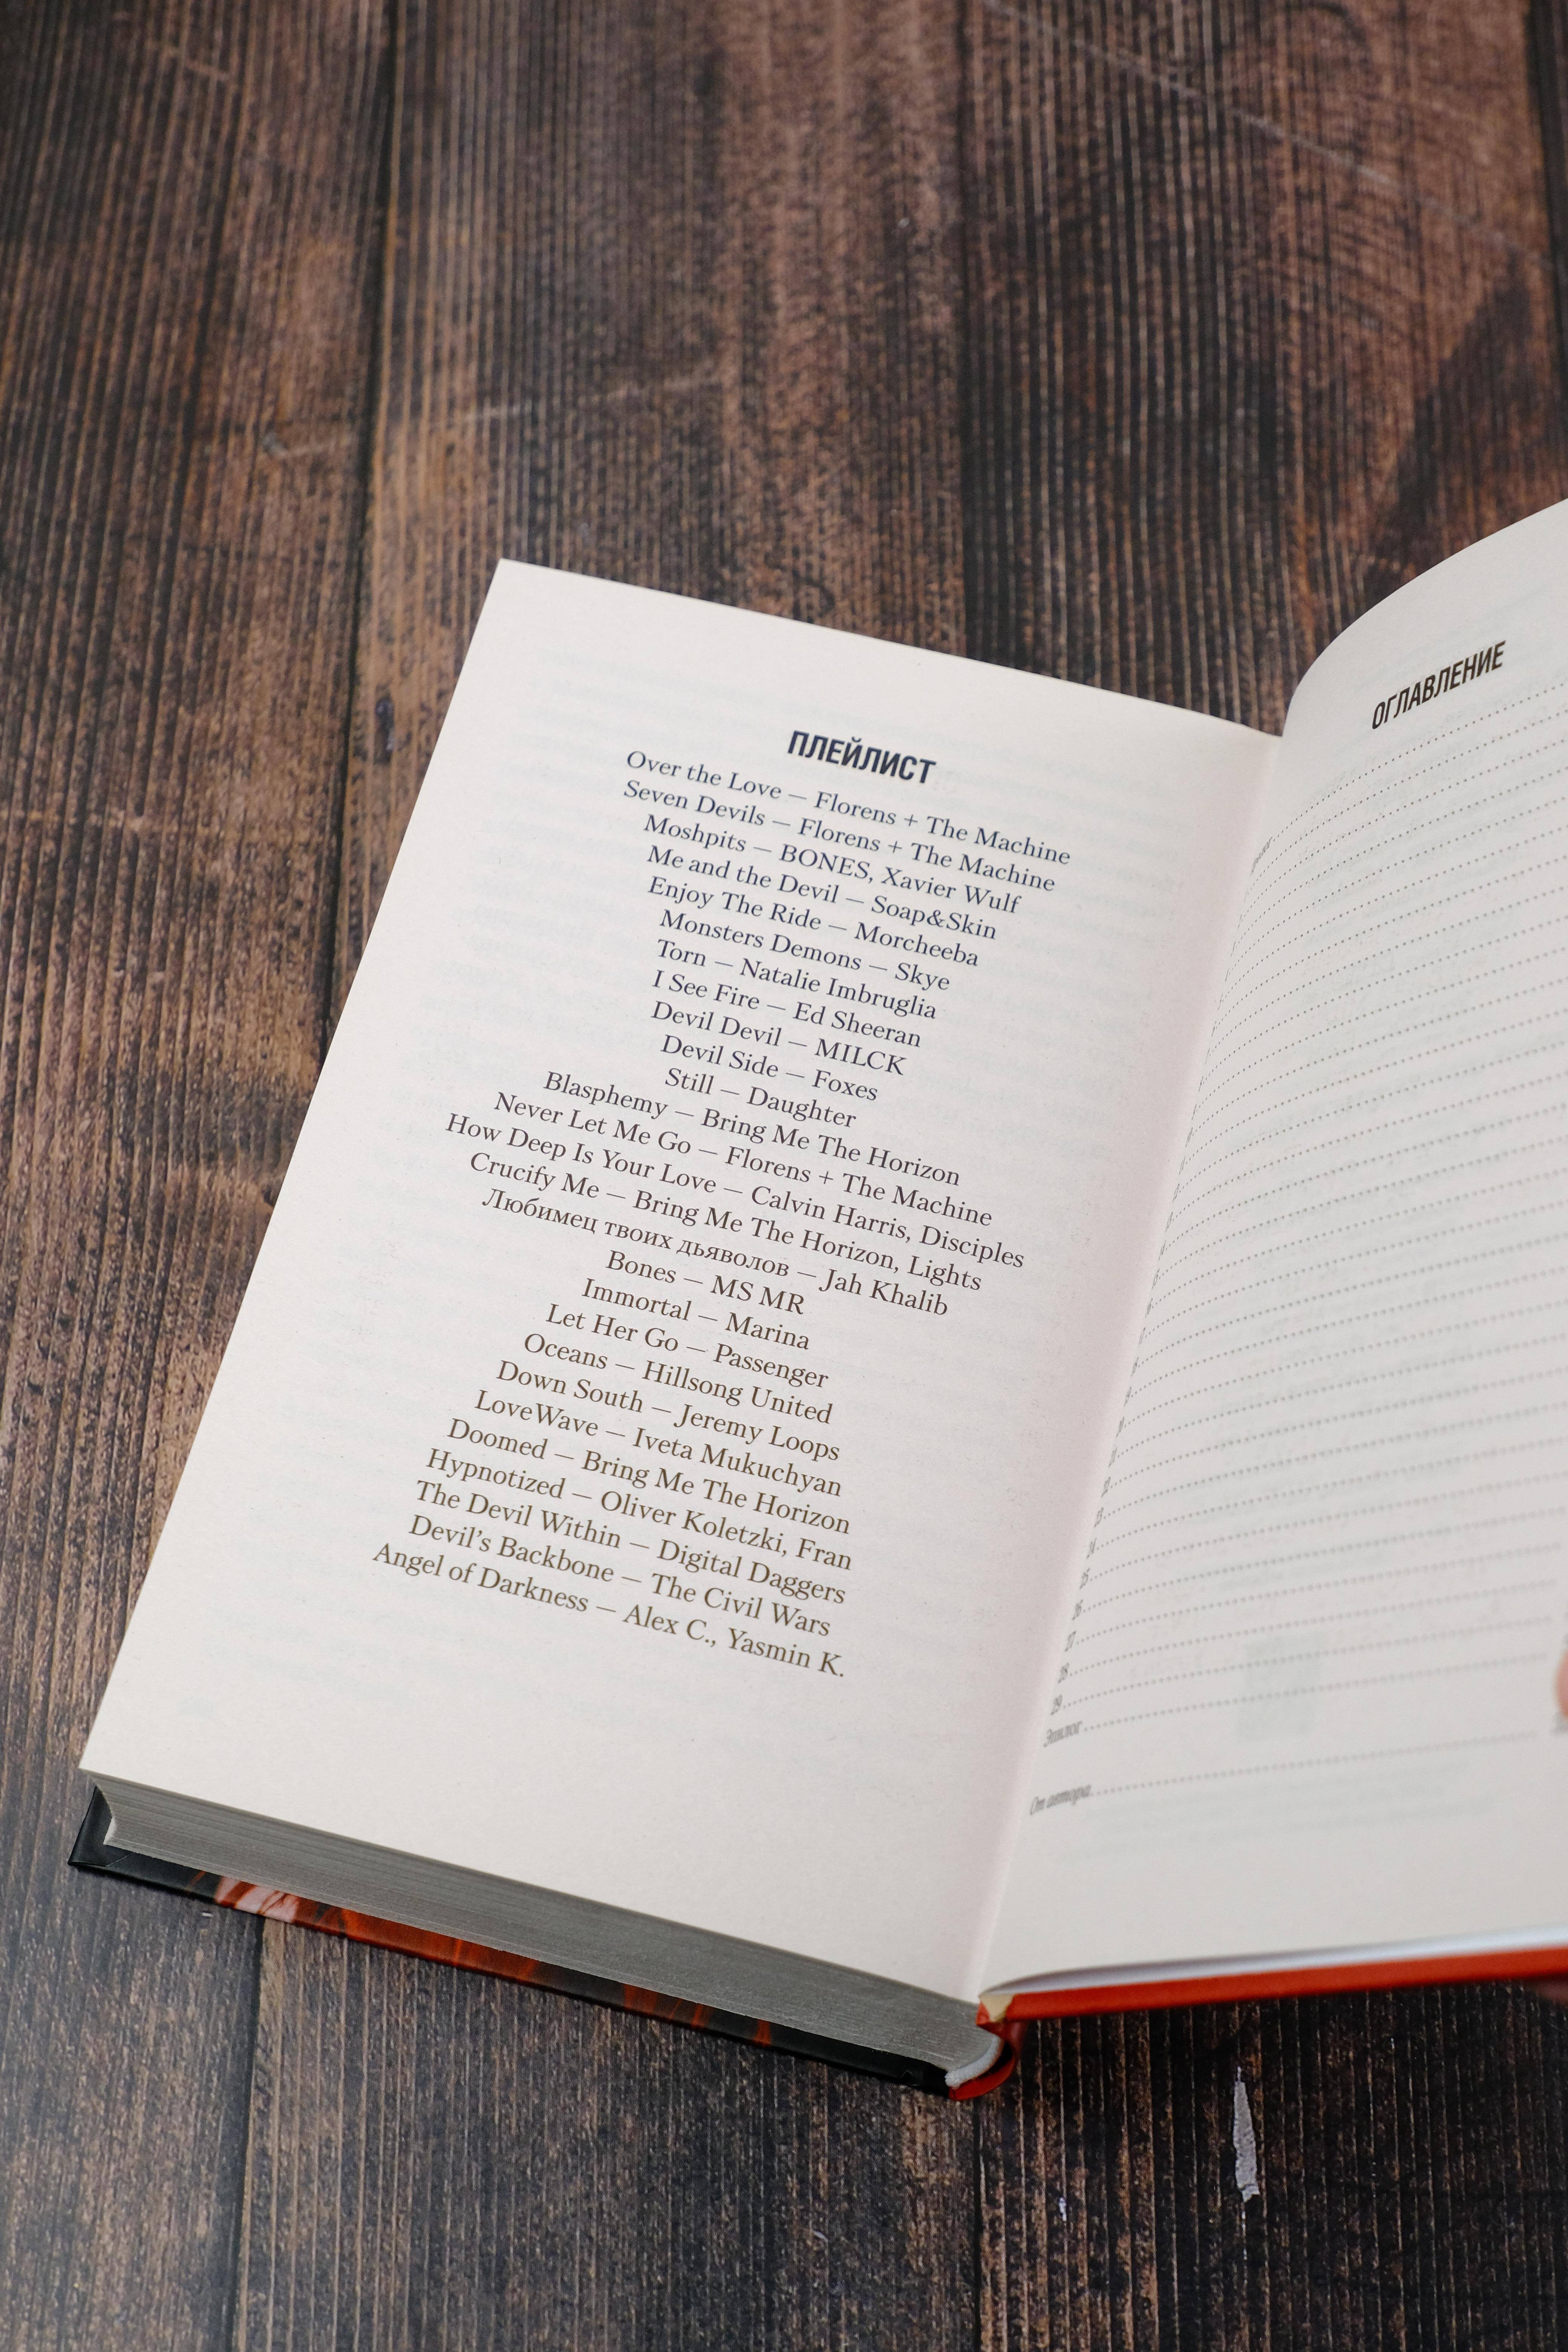 ПЛЕЙЛИСТ
Over the Love — Florens + The Machine
Seven Devils — Florens + The Machine
Moshpits — BONES, Xavier Wulf
Me and the Devil — Soap&Skin
Enjoy The Ride — Morcheeba
Monsters Demons — Skye
Torn — Natalie Imbruglia
I See Fire — Ed Sheeran
Devil Devil — MILCK
Devil Side — Foxes
Still — Daughter
Blasphemy — Bring Me The Horizon
Never Let Me Go — Florens + The Machine
How Deep Is Your Love — Calvin Harris, Disciples
Crucify Me — Bring Me The Horizon, Lights
Любимец твоих дьяволов — Jah Khalib
Bones — MS MR
Immortal — Marina
Let Her Go — Passenger
Oceans — Hillsong United
Down South — Jeremy Loops
LoveWave — Iveta Mukuchyan
Doomed — Bring Me The Horizon
Hypnotized — Oliver Koletzki, Fran
The Devil Within — Digital Daggers
Devil’s Backbone — The Civil Wars
Angel of Darkness — Alex C., Yasmin K.
ОГЛАВЛЕНИЕ
23
24
25
26
27
28
29
Эпилог
От автора